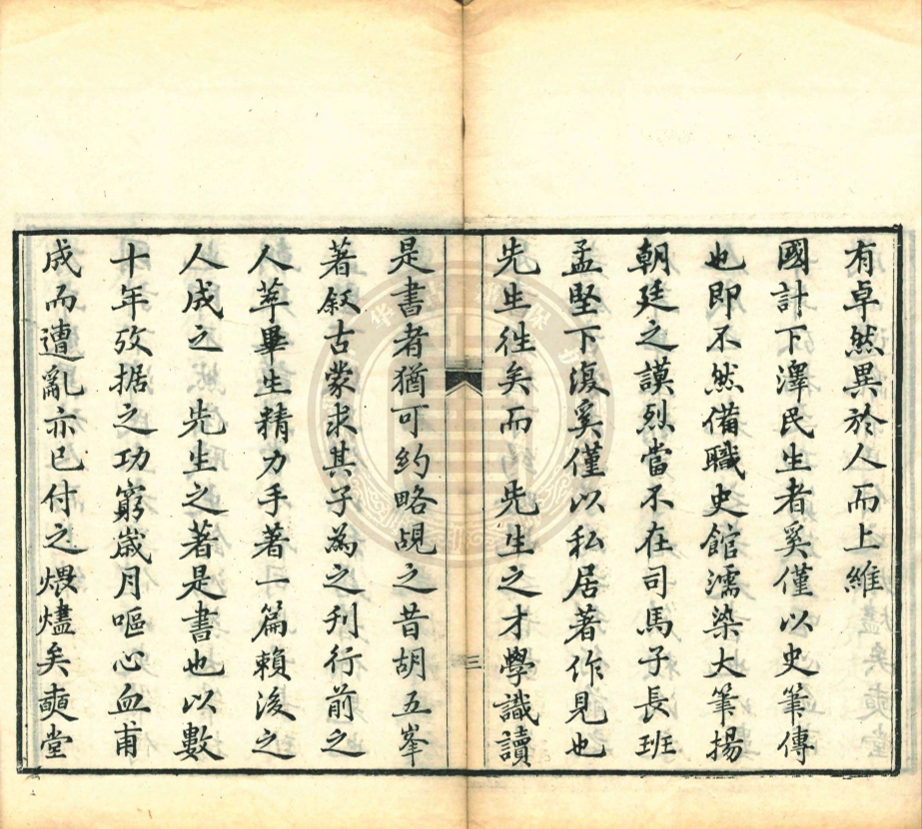 有卓然異於人而上維
國計下澤民生者奚僅以史筆傳
也即不然備職史館濡染大筆揚
朝廷之謨烈當不在司馬子長班
孟堅下復奚僅以私居著作見也
先生徃矣而先生之才學識讀
三
是書者猶可約略覘之昔胡五峯
著叙古蒙求其子為之刋行前之
人萃畢生精力手著一篇賴後之
人成之 先生之著是書也以數
十年攷据之功窮歲月嘔心血甫
成而遭亂亦已付之煨燼矣奭堂